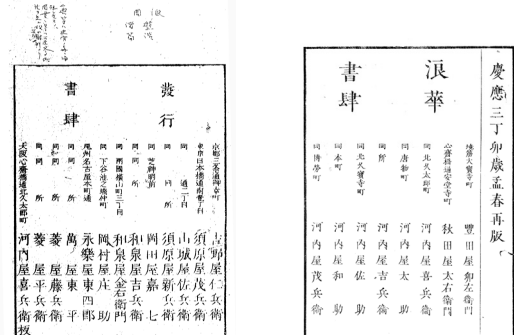 慶應三丁卯歳孟春再版
浪華
書肆
豊田屋卯左衞門
心齋橋通安堂寺町
秋田屋太右衞門
同北久太郎町
河内屋喜兵衞
同唐物町
河内屋太助
同所
河内屋吉兵衞
同北久寶寺町
河内屋佐助
同本町
河内屋和助
同博勞町
河内屋茂兵衞
發行
書肆
京都三条通御幸町
吉野屋仁兵衞
東京日本橋通南壹丁目
須原屋茂兵衞
同 通二丁目
山城屋佐兵衞
同 同所
須原屋新兵衞
同 芝神明前
岡田屋嘉七
同 同所
和泉屋吉兵衞
同 兩國橫山町三丁目
和泉屋金右衞門
同 下谷池之端仲町
岡村屋庄助
尾州名古屋本町通
永樂屋東四郎
同 同所
萬屋東平
同 同所
菱屋藤兵衞
同 同所
菱屋平兵衞
大阪心齋橋通北久太郎町
河内屋喜兵衞板